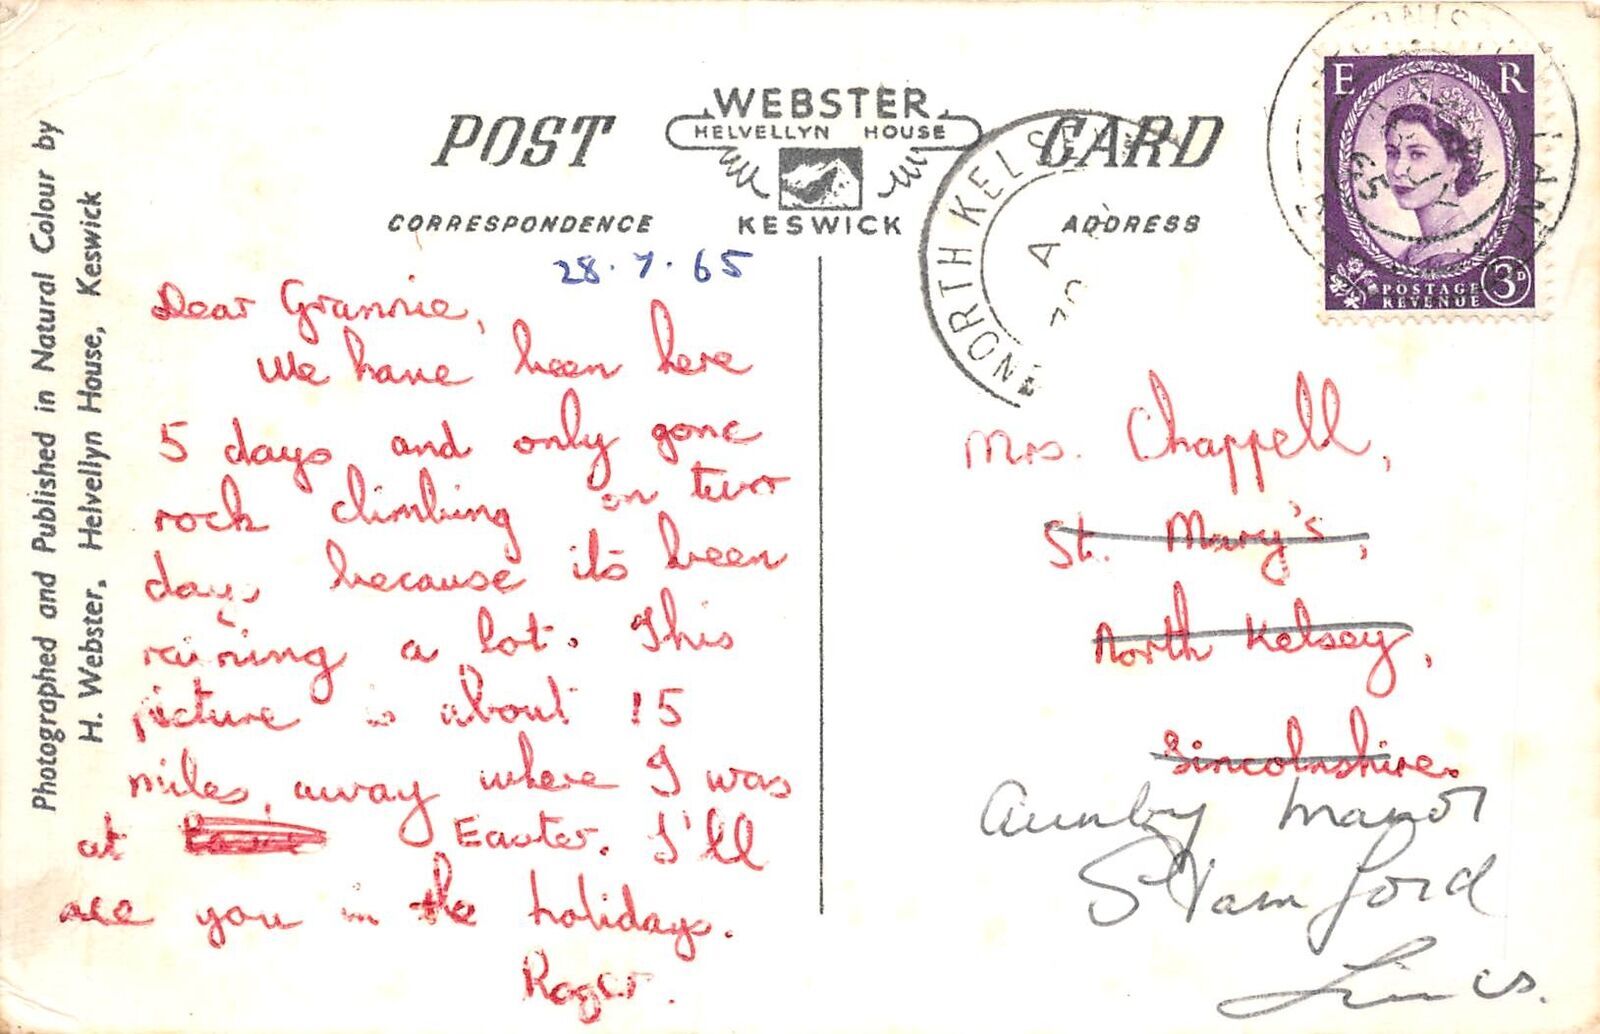 Photographed and Published in Natural Colour by
H. Webster, Helvellyn House, Keswick
POST CARD
WEBSTER
HELVELLYN HOUSE
KESWICK
CORRESPONDENCE
ADDRESS
28.7.65
Dear Grannie,
We have been here
5 days and only gone
rock climbing on two
days because its been
raining a lot. This
picture is about 15
miles away where I was
at Easter. I'll
see you in the holidays.
Roger.
E R
POSTAGE
REVENUE
3D
NORTH KELSEY
65
Mrs. Chappell,
St. Mary's,
North Kelsey,
Lincolnshire.
Aunby Manor
Stamford
Lincs.